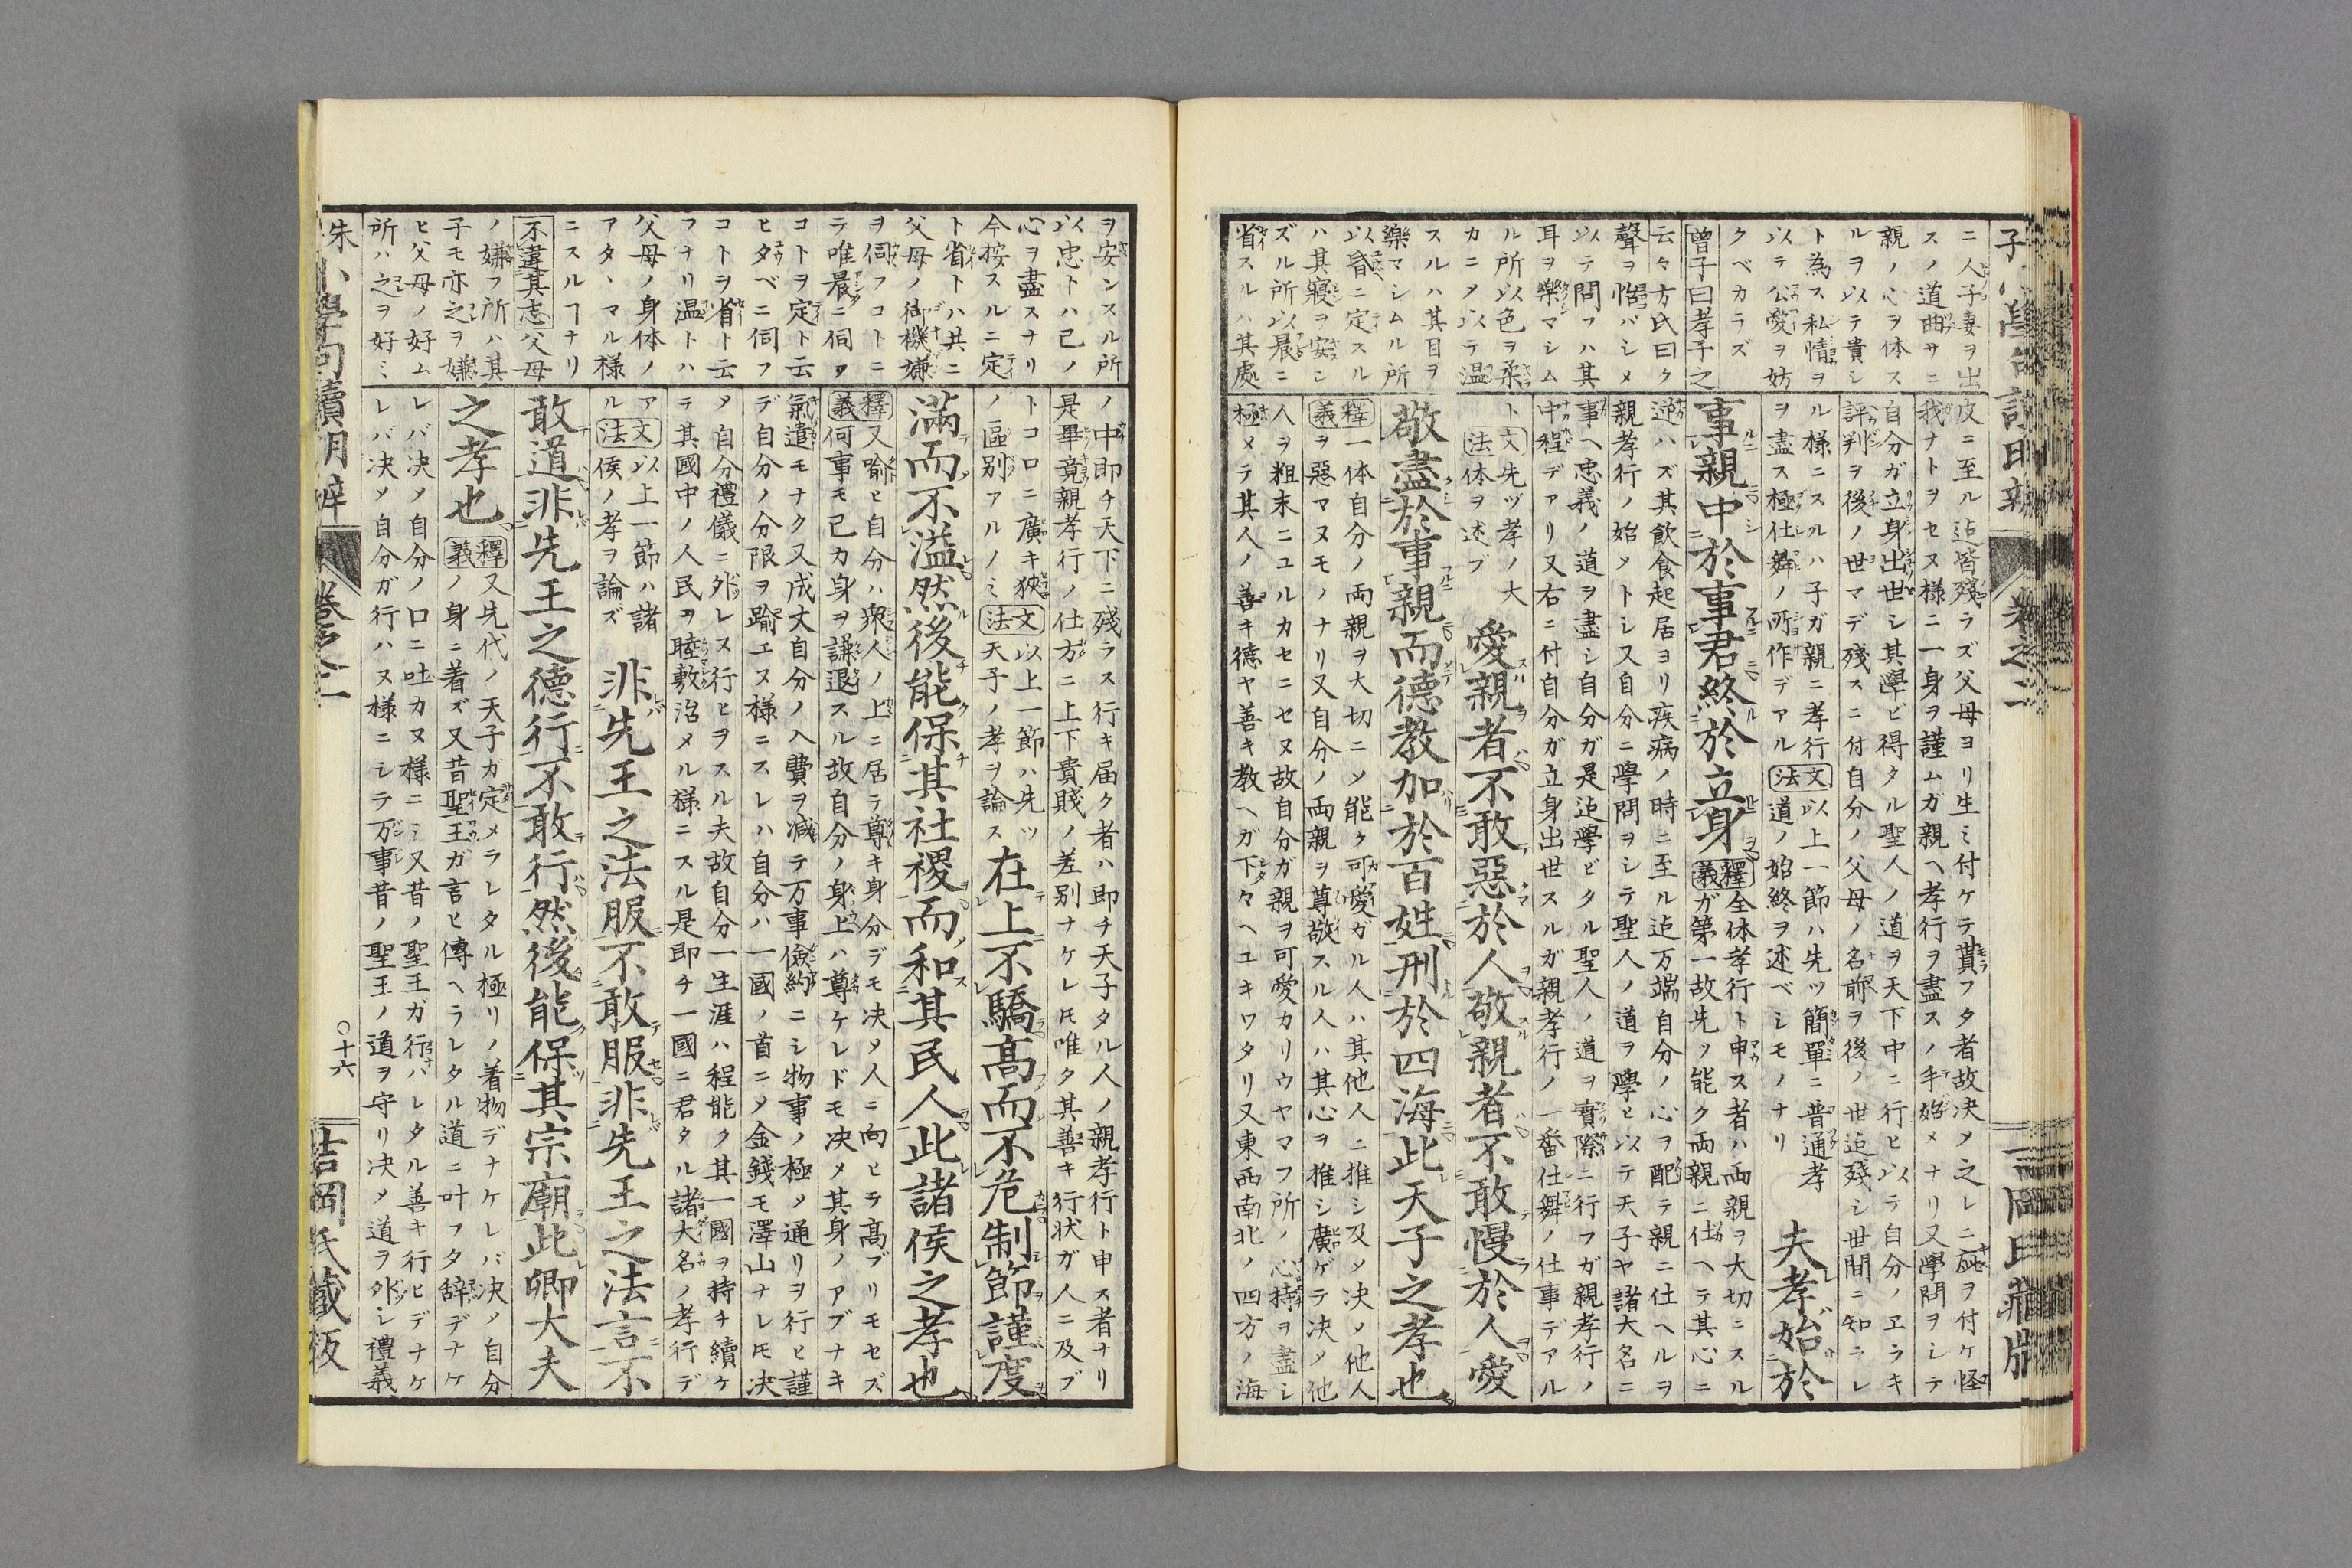 ニ人子妻ヲ出
スノ道曲サニ
親ノ心ヲ体ス
ルヲ以テ貴シ
ト為ス私情ヲ
以テ公愛ヲ妨
クベカラズ
曽子曰孝子之
云々方氏曰ク
聲ヲ怡バシメ
以テ問フハ其
耳ヲ樂マシム
ル所以色ヲ柔
カニメ以テ温
スルハ其目ヲ
樂マシムル所
以昏ニ定スル
ハ其寝ヲ安シ
ズル所以晨ニ
省スルハ其處
皮ニ至ル迠皆殘ラズ父母ヨリ生ミ付ケテ貰フタ者故决メ之レニ疵ヲ付ケ怪
我ナトヲセヌ様ニ一身ヲ謹ムガ親ヘ孝行ヲ盡スノ手始メナリ又學問ヲシテ
自分ガ立身出世シ其學ビ得タル聖人ノ道ヲ天下中ニ行ヒ以テ自分ノヱラキ
評判ヲ後ノ世マデ殘スニ付自分ノ父母ノ名前ヲ後ノ世迠殘シ世間ニ知ニレ
ル様ニスルハ子ガ親ニ孝行
ヲ盡ス極仕舞ノ所作デアル
文法
以上一節ハ先ツ簡單ニ普通孝
道ノ始終ヲ述ベシモノナリ
夫孝始於
事親中於事君終於立身
釋義
全体孝行ト申ス者ハ両親ヲ大切ニスル
ガ第一故先ツ能ク両親ニ仕ヘテ其心ニ
逆ハズ其飲食起居ヨリ疾病ノ時ニ至ル迠万端自分ノ心ヲ配テ親ニ仕ヘルヲ
親孝行ノ始メトシ又自分ニ學問ヲシテ聖人ノ道ヲ學ヒ以テ天子ヤ諸大名ニ
事ヘ忠義ノ道ヲ盡シ自分ガ是迠學ビタル聖人ノ道ヲ實際ニ行フガ親孝行ノ
中程デアリ又右ニ付自分ガ立身出世スルガ親孝行ノ一番仕舞ノ仕事デアル
ト
文法
先ヅ孝ノ大
体ヲ述ブ
愛親者不敢惡於人敬親者不敢慢於人愛
敬盡於事親而德教加於百姓刑於四海此天子之孝也
釋義
一体自分ノ両親ヲ大切ニシ能ク可愛ガル人ハ其他人ニ推シ及メ决メ他人
ヲ惡マヌモノナリ又自分ノ両親ヲ尊敬スル人ハ其心ヲ推シ廣ゲテ决メ他
人ヲ粗末ニユルカセニセヌ故自分ガ親ヲ可愛カリウヤマフ所ノ心持ヲ盡シ
極メテ其人ノ善キ德ヤ善キ教ヘガ下々ヘユキワタリ又東西南北ノ四方ノ海
ヲ安ンスル所
以忠トハ己ノ
心ヲ盡スナリ
今按スルニ定
ト省トハ共ニ
父母ノ御機嫌
ヲ伺フコトニ
テ唯晨ニ伺ヲ
コトヲ定ト云
ヒタベニ伺フ
コトヲ省ト云
フナリ温トハ
父母ノ身体ノ
アタヽマル様
ニスルヿナリ
不違其志父母
ノ嫌フ所ハ其
子モ亦之ヲ嫌
ヒ父母ノ好ム
所ハ之ヲ好ミ
ノ中即チ天下ニ殘ラス行キ届ク者ハ即チ天子タル人ノ親孝行ト申ス者ナリ
是畢竟親孝行ノ仕方ニ上下貴賎ノ差别ナケレ𪜈唯タ其善キ行状ガ人ニ及ブ
トコロニ廣キ狹
ノ區别アルノミ
文法
以上一節ハ先ツ
天子ノ孝ヲ論ス
在上不驕高而不危制節謹度
滿而不溢然後能保其社稷而和其民人此諸侯之孝也
釋義
又喩ヒ自分ハ衆人ノ上ニ居テ尊キ身分デモ决メ人ニ向ヒテ高ブリモセズ
何事モ己カ身ヲ謙退スル故自分ノ身上ハ尊ケレドモ决メ其身ノアブナキ
氣遣モナク又成丈自分ノ入費ヲ减テ万事儉約ニシ物事ノ極メ通リヲ行ヒ謹
デ自分ノ分限ヲ踰エヌ様ニスレハ自分ハ一國ノ首ニメ金錢モ澤山ナレ𪜈决
メ自分禮儀ニ外レヌ行ヒヲスル夫故自分一生涯ハ程能ク其一國ヲ持チ續ケ
テ其國中ノ人民ヲ睦敷治メル様ニスル是即チ一國ニ君タル諸大名ノ孝行デ
ア
ル
文法
以上一節ハ諸
侯ノ孝ヲ論ズ
非先王之法服不敢服非先王之法言不
敢道非先王之德行不敢行然後能保其宗廟此卿大夫
之孝也
釋義
又先代ノ天子ガ定メラレタル極リノ着物デナケレバ决メ自分
ノ身ニ着ズ又昔聖王ガ言ヒ傳ヘラレタル道ニ叶フタ辞デナケ
レバ决メ自分ノ口ニ吐カヌ様ニシ又昔ノ聖王ガ行ハレタル善キ行ヒデナケ
レバ决メ自分ガ行ハヌ様ニシテ万事昔ノ聖王ノ道ヲ守リ决メ道ヲ外シ禮義
朱小學句讀明辨
卷之二
〇十六
吉岡氏藏板